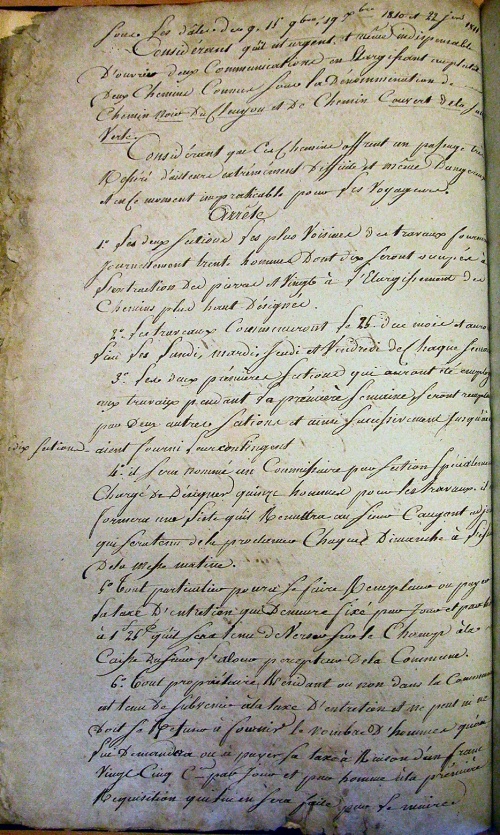 sous les dates des 9, 15 9bre, 19 Xbre 1810 et 22 janv 1811
Considerant qu'il est urgent et même indispensable
D'ouvrir deux Communications en Elargissant
Deux Chemins Connus sous la Denommination de
Chemin noir Du et De Chemin Couvert de la
Verte.
Considérant que Ces Chemins offrent un passage
d'ailleurs extrèmement Difficile et même Dangereux
et en ce moment impraticable pour les Voyageurs.
Arrête
1° Les deux sections les plus Voisines des travaux
journellement trente hommes Dont dix seront occupés à
l'extraction des pierres et Vingt à l'Elargissement des
Chemins plus haut Désignés.
2° Les travaux Commenceront le 25 du mois et auront
lieu les Lundi, mardi, Jeudi et Vendredi de Chaque semaine
3° Les deux premières sections qui auront été
aux travaux pendant la première semaine seront
par Deux autres sections et ainsi successivement jusqu'à
dix sections aient fourni leur contingent
4° il sera nommé un Commissaire par section specialement
Chargé de Désigner quinze hommes pour les travaux. il
formera une liste qu'il Remettra au sieur
qui sera tenu de la proclamer Chaque Dimanche à
De la messe matine.
5° Tout particulier pourra se faire Remplacer ou payer
la taxe D'entretien qui Demeure fixé par Jour et par
à 1f 25c qu'il sera tenu de Verser sur le Champ à la
Caisse du sieur percepteur de la Commune.
6° Tout propriétaire Résidant ou non dans la Commune
est tenu de subvenir à la taxe D'entretien et ne peut ni ne
Doit se Refuser à fournir le nombre D'hommes
lui Demandera ou à payer sa taxe à Raison d'un franc
Vingt Cinq Cmes par Jour et par homme à la première
Requisition qui lui en sera faite par le maire